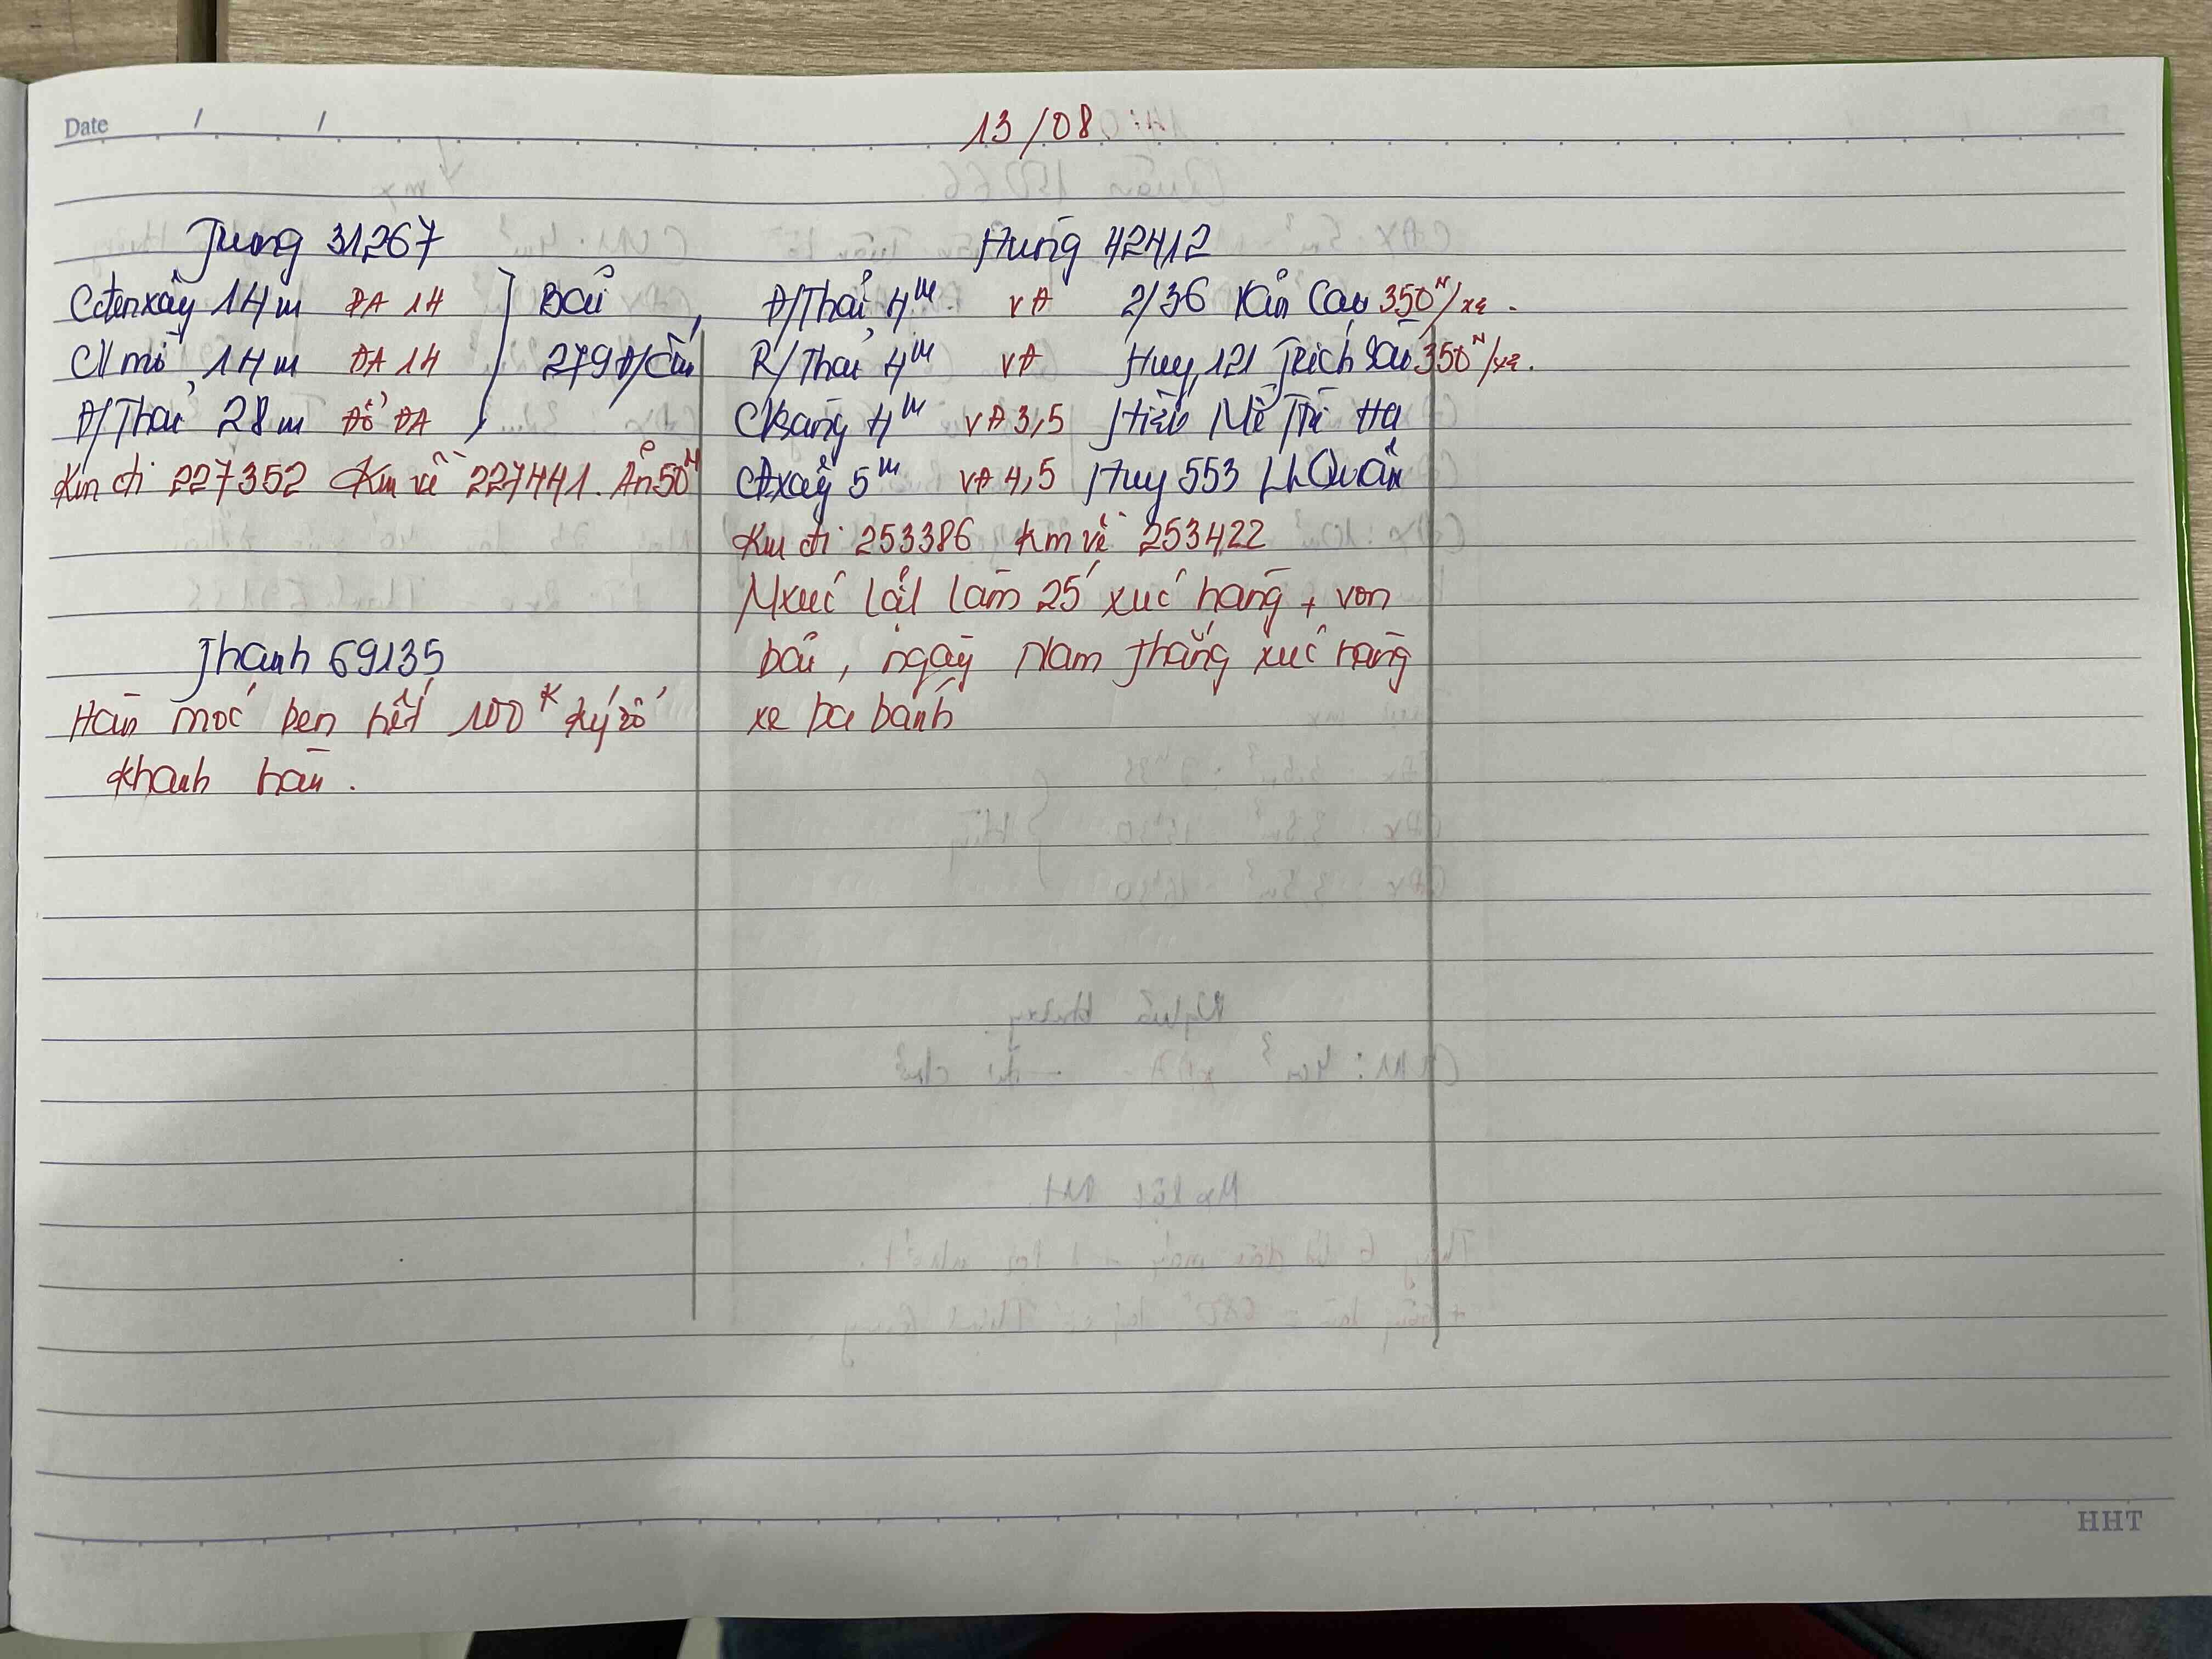 Date / /
13/08
Tương 31267
Cđen xây 14m ĐA 14
CV mờ 14m ĐA 14
Đ/Thải 28m Đổ ĐA
Bãi
279 Đ/Cấn
Km đi 227352 Km về 227441. Ăn 50N
Thanh 69135
Hàn móc ben hết 100K Ký sổ
Khanh hàn.
Hùng 42412
Đ/Thải 4m VA 2/36 Văn Cao 350N/xe.
R/Thải 4m VA Huy, 121 Trích Sài 350N/xe.
CVàng 4m VA 3,5 Hiếu Mễ Trì Hạ
CĐxây 5m VA 4,5 Huy 553 LLQuân
Km đi 253386 Km về 253422
Mxúc lật làm 25' xúc hàng + von
bãi, ngày Nam Thắng xúc hàng
xe ba bánh
HHT